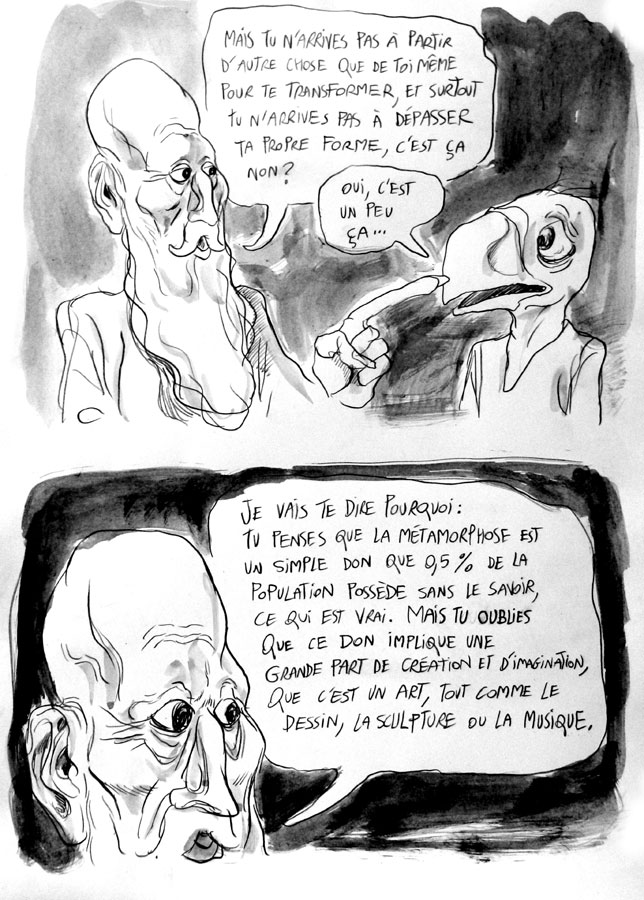 MAIS TU N'ARRIVES PAS À PARTIR
D'AUTRE CHOSE QUE DE TOI MÊME
POUR TE TRANSFORMER, ET SURTOUT
TU N'ARRIVES PAS À DÉPASSER
TA PROPRE FORME, C'EST ÇA
NON?
OUI, C'EST
UN PEU
ÇA...
JE VAIS TE DIRE POURQUOI:
TU PENSES QUE LA MÉTAMORPHOSE EST
UN SIMPLE DON QUE 0,5% DE LA
POPULATION POSSÈDE SANS LE SAVOIR,
CE QUI EST VRAI. MAIS TU OUBLIES
QUE CE DON IMPLIQUE UNE
GRANDE PART DE CRÉATION ET D'IMAGINATION,
QUE C'EST UN ART, TOUT COMME LE
DESSIN, LA SCULPTURE OU LA MUSIQUE.